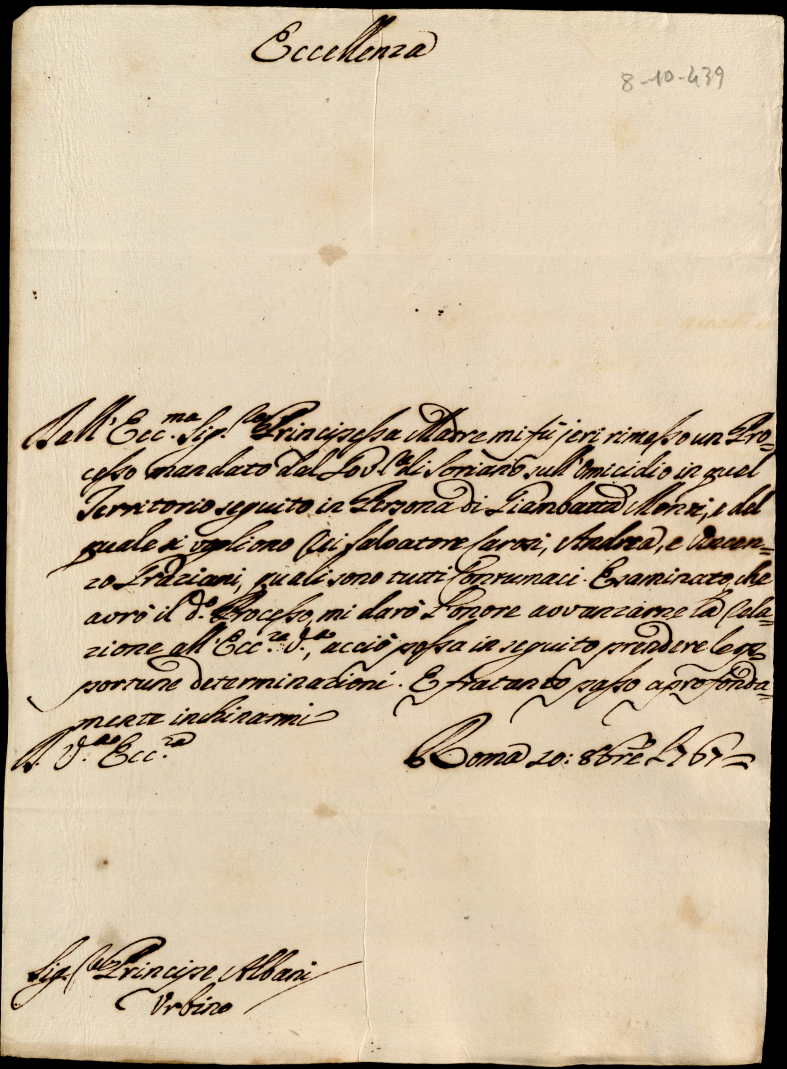 Eccellenza
8-10-439
Dall'Ecc.ma Sig.ra Principessa Madre mi fù jeri rimesso un Pro-
cesso mandato dal Gov.re di Soriano sull'Omicidio in quel
Territorio seguito in Persona di Giambatta Monzi, e del
quale si vogliono Rei Salvatore Carosi, Andrea, e Vincen-
zo Graziani, quali sono tutti Contumaci. Esaminato, che
avrò il d.o Processo, mi darò l'onore avvanzarne la Rela-
zione all'Ecc.za V.ra, acciò possa in seguito prendere le op-
portune determinazioni. E fratanto passo a profonda-
mente inchinarmi
D. V.ra Ecc.za
Roma 20: 8bre 1767
Sig. Principe Albani
Urbino